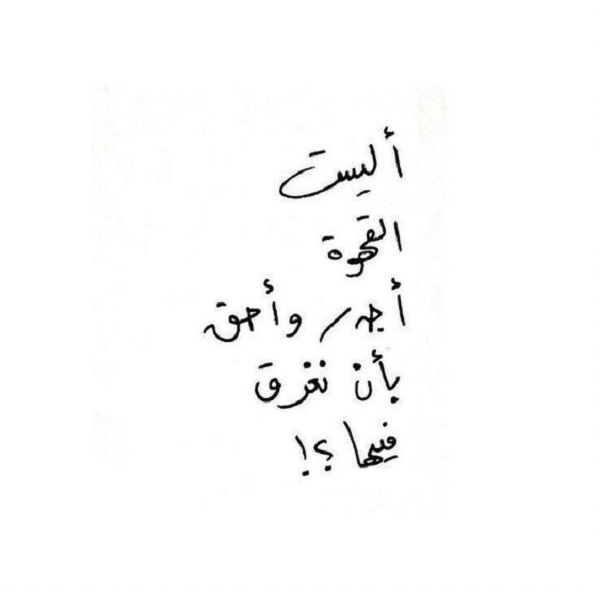 أليست
القهوة
أجدر وأحق
بأن نغرق
فيها ؟!